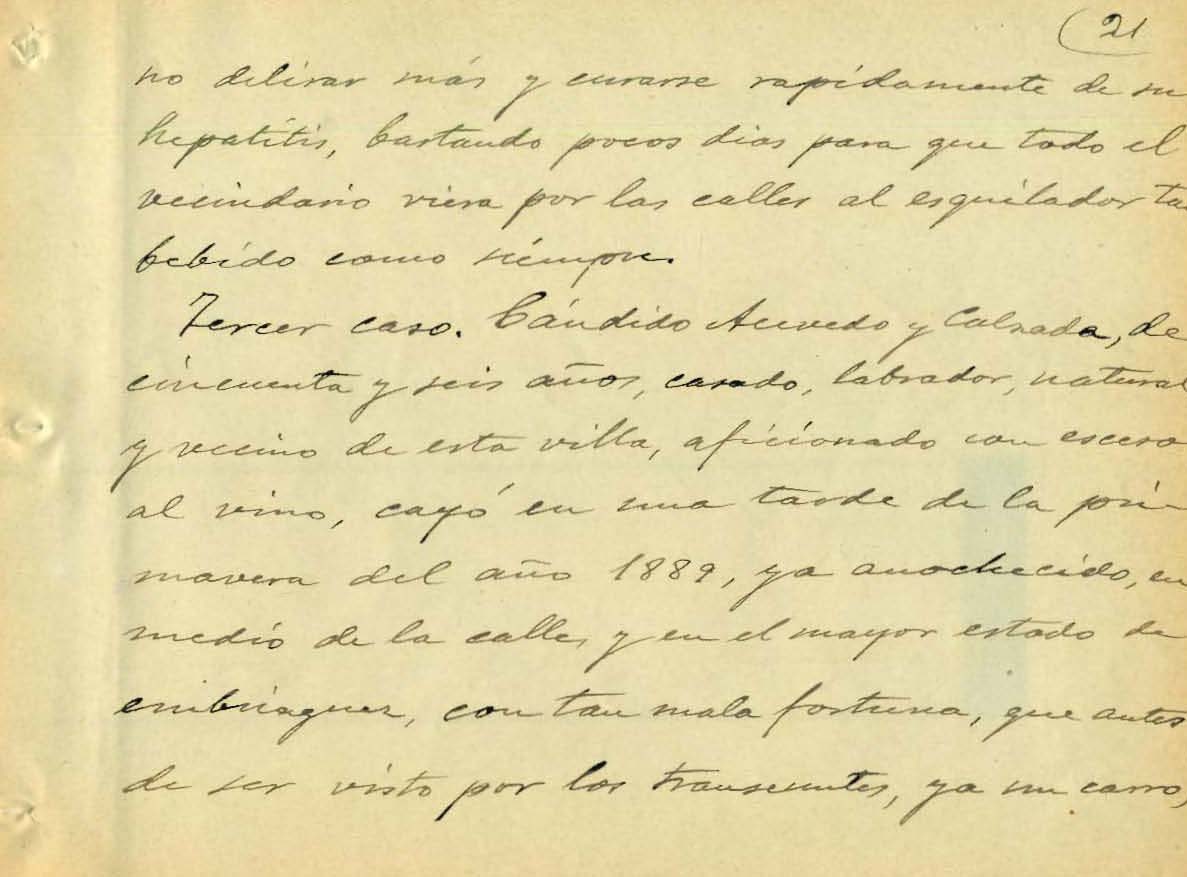 (21
no delirar más y curarse rapídamente de su
hepatítis, bastando pocos dias para que todo el
vecindario viera por las calles al esquilador ta
bebido como siempre.
Tercer caso. Cándido Acevedo y Calzada, de
cincuenta y seis años, casado, labrador, natural
y vecino de esta villa, aficionado con esceso
al vino, cayó en una tarde de la pri-
mavera del año 1889, ya anochecido, en
medio de la calle, y en el mayor estado de
embriaguez, con tan mala fortuna, que antes
de ser visto por los transeuntes, ya un carro,